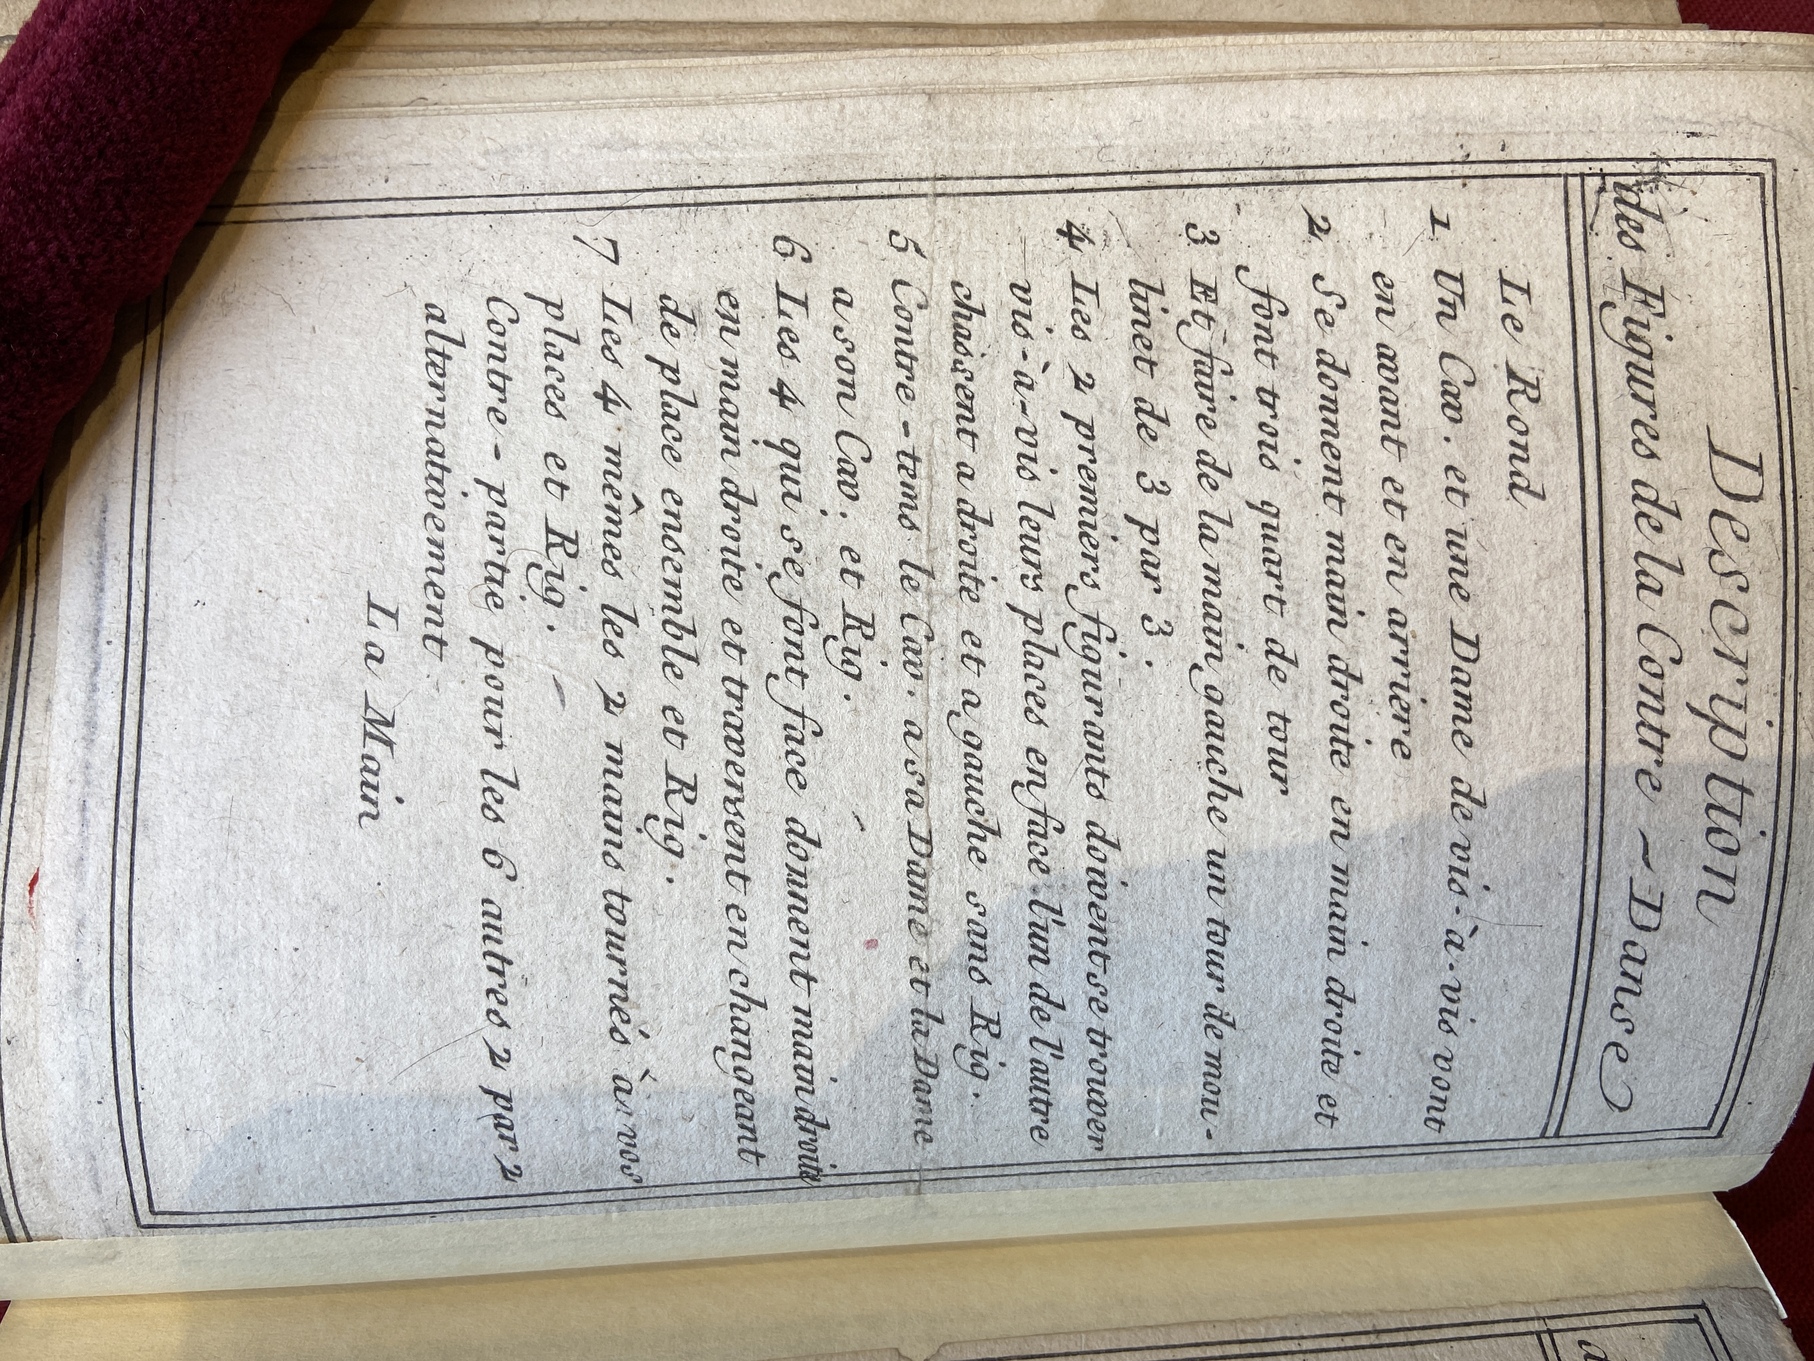 Description
des Figures de la Contre-Danse
Le Rond
1 Un Cav. et une Dame de vis-à-vis vont
en avant et en arriere
2 Se donnent main droite en main droite et
font trois quart de tour
3 Et faire de la main gauche un tour de mou-
linet de 3 par 3.
4 Les 2 premiers figurants doivent se trouver
vis-à-vis leurs places en face l'un de l'autre
chassent a droite et a gauche sans Rig.
5 Contre-tems le Cav. a sa Dame et la Dame
a son Cav. et Rig.
6 Les 4 qui se font face donnent main droite
en main droite et traversent en changeant
de place ensemble et Rig.
7 Les 4 mêmes les 2 mains tournés à vos
places et Rig.
Contre-partie pour les 6 autres 2 par 2
alternativement
La Main